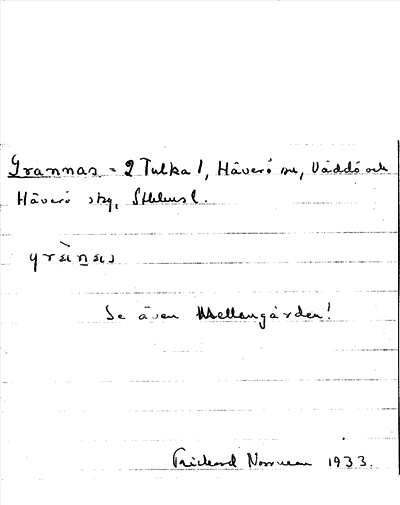 Grannas = 2 Tulka 1, Häverö sn, Väddö och
Häverö skg, Sthlms l.
Se även Mellangården!
Rickard Norrman 1933.